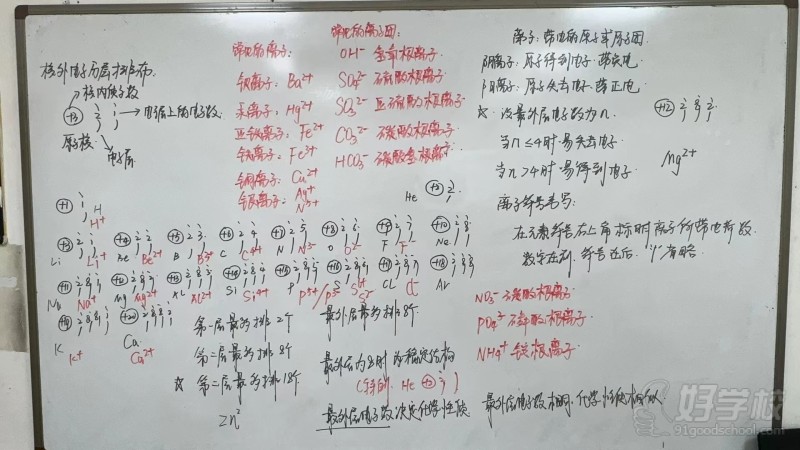 核外电子分层排布
核内质子数
+3 2 1
电子层上的电子数
原子核
电子层
常见的离子:
钡离子: Ba²⁺
汞离子: Hg²⁺
亚铁离子: Fe²⁺
铁离子: Fe³⁺
铜离子: Cu²⁺
银离子: Ag⁺
常见的离子团:
OH⁻ 氢氧根离子
SO₄²⁻ 硫酸根离子
SO₃²⁻ 亚硫酸根离子
CO₃²⁻ 碳酸根离子
HCO₃⁻ 碳酸氢根离子
离子: 带电的原子或原子团.
阴离子: 原子得到电子. 带负电
阳离子: 原子失去电子. 带正电
☆ 设最外层电子数为n.
当n≤4时 易失去电子
当n>4时 易得到电子.
+12 2 8 2
Mg²⁺
离子符号书写:
在元素符号右上角标明离子所带电荷数.
数字在前. 符号在后. "1"省略.
NO₃⁻ 硝酸根离子
PO₄³⁻ 磷酸根离子
NH₄⁺ 铵根离子
+1 1 H
H⁺
He +2 2
+3 2 1 Li Li⁺
+4 2 2 Be Be²⁺
+5 2 3 B B³⁺
+6 2 4 C C⁴⁺
+7 2 5 N N³⁻ N⁵⁺
+8 2 6 O O²⁻
+9 2 7 F F⁻
+10 2 8 Ne
+11 2 8 1 Na Na⁺
+12 2 8 2 Mg Mg²⁺
+13 2 8 3 Al
+14 2 8 4 Si Si⁴⁺
+15 2 8 5 P P⁵⁺/P³⁻
+16 2 8 6 S S²⁻
+17 2 8 7 Cl
+18 2 8 8 Ar
+19 2 8 8 1 K K⁺
+20 2 8 8 2 Ca Ca²⁺
第一层最多排2个
最外层最多排8个
第二层最多排8个
最外层为8时 为稳定结构
☆ 第三层最多排18个
(特别: He +2 2)
2n²
最外层电子数决定化学性质
最外层电子数相同. 化学性质相似
好学校
91goodschool.com